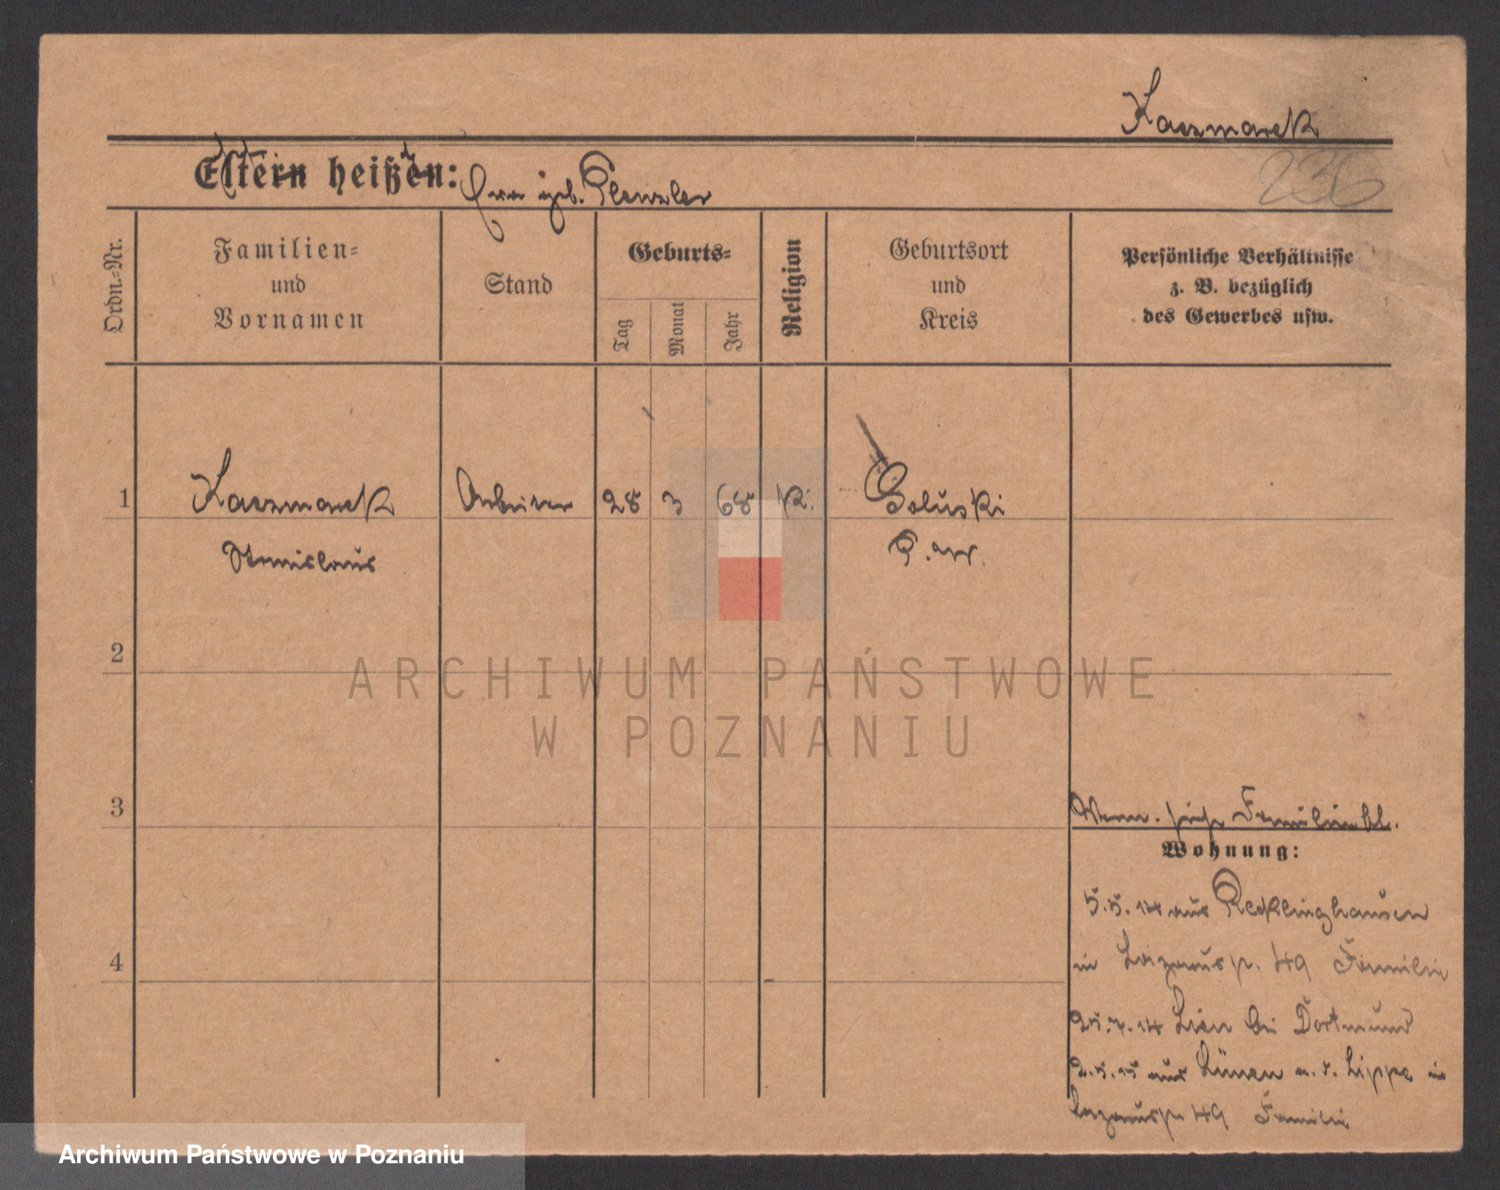 Kaczmarek
236
Eltern heißen: Frau geb. Plenzler
Ordn.=Nr.
Familien=
und
Vornamen
Stand
Geburts=
Tag
Monat
Jahr
Religion
Geburtsort
und
Kreis
Persönliche Verhältnisse
z. B. bezüglich
des Gewerbes usw.
1 Kaczmarek Arbeiter 28 3 68 k. Goluski
Stanislaus P. W.
2
ARCHIWUM PAŃSTWOWE
W POZNANIU
3
Verm. siehe Familienbl.
Wohnung:
5.5.14 aus Recklinghausen
in Lazarusstr. 49 Familie
4
25.7.14 bei Dortmund
2.5.15 aus Lünen a. d. Lippe in
Lazarusstr 49 Familie
Archiwum Państwowe w Poznaniu